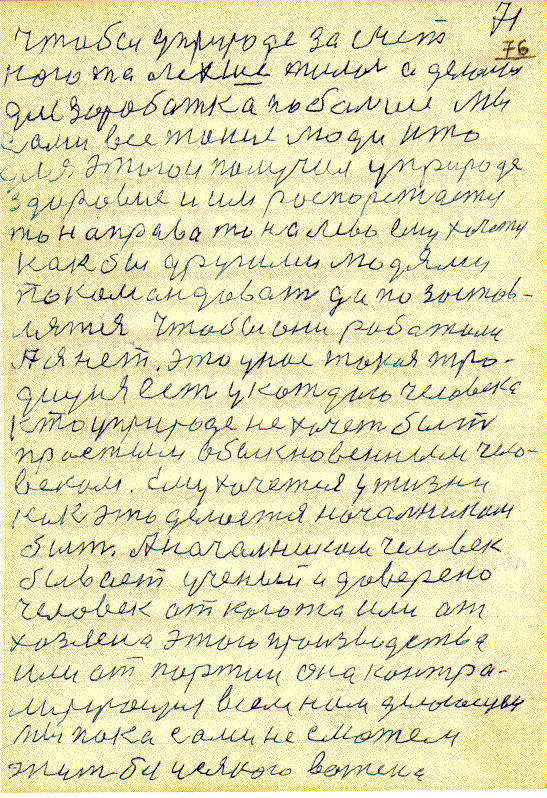 71
76
чтобы уприроде за счет
кого то легше жилос и делалос
для заработка побалше Мы
сами все такие люди кто
для этого и получил уприроде
здоровие и им роспоржается
то направа то налево ему хочется
как бы другими людями
покомандоват да позостав-
лятся чтобы они работали
А я нет. это унас такая тро-
диция ест укаждого человека
кто уприроде не хочет быт
простым обыкновенным чело-
веком. ему хочется ужизни
как это делается началником
быт. А началником человек
бывает ученый и доверено
человек от кого то или от
хозяена этого производства
или от партии она контра-
лирующия всем нам делающия
Мы пока сами не сможем
жит бы усякого вожека